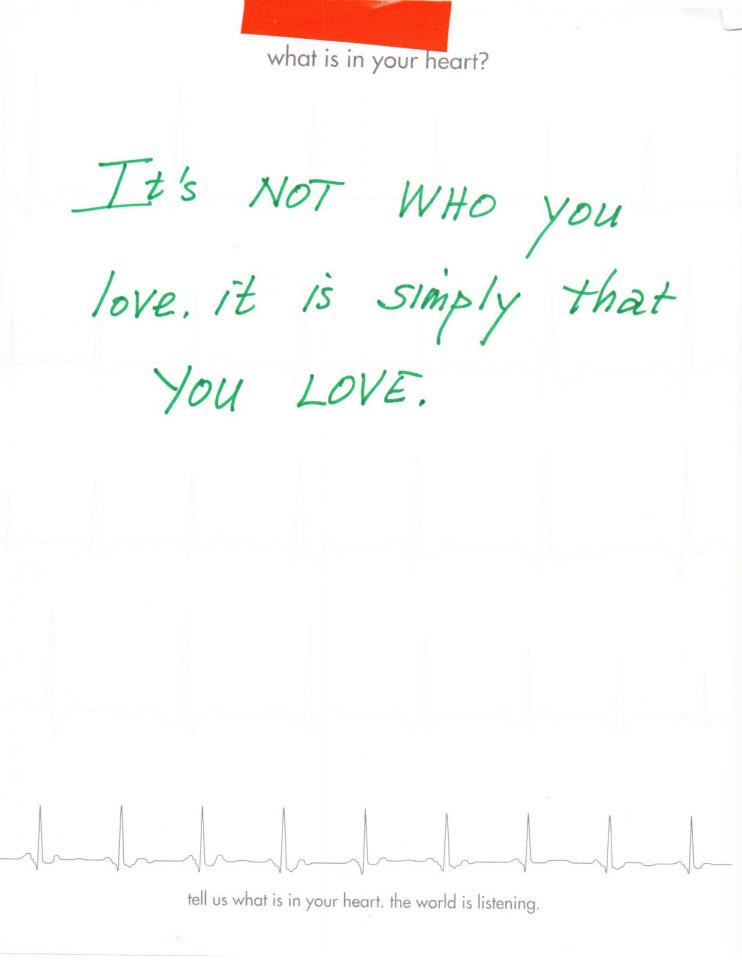 what is in your heart?
It's NOT WHO you
love. it is simply that
YOU LOVE.
tell us what is in your heart. the world is listening.